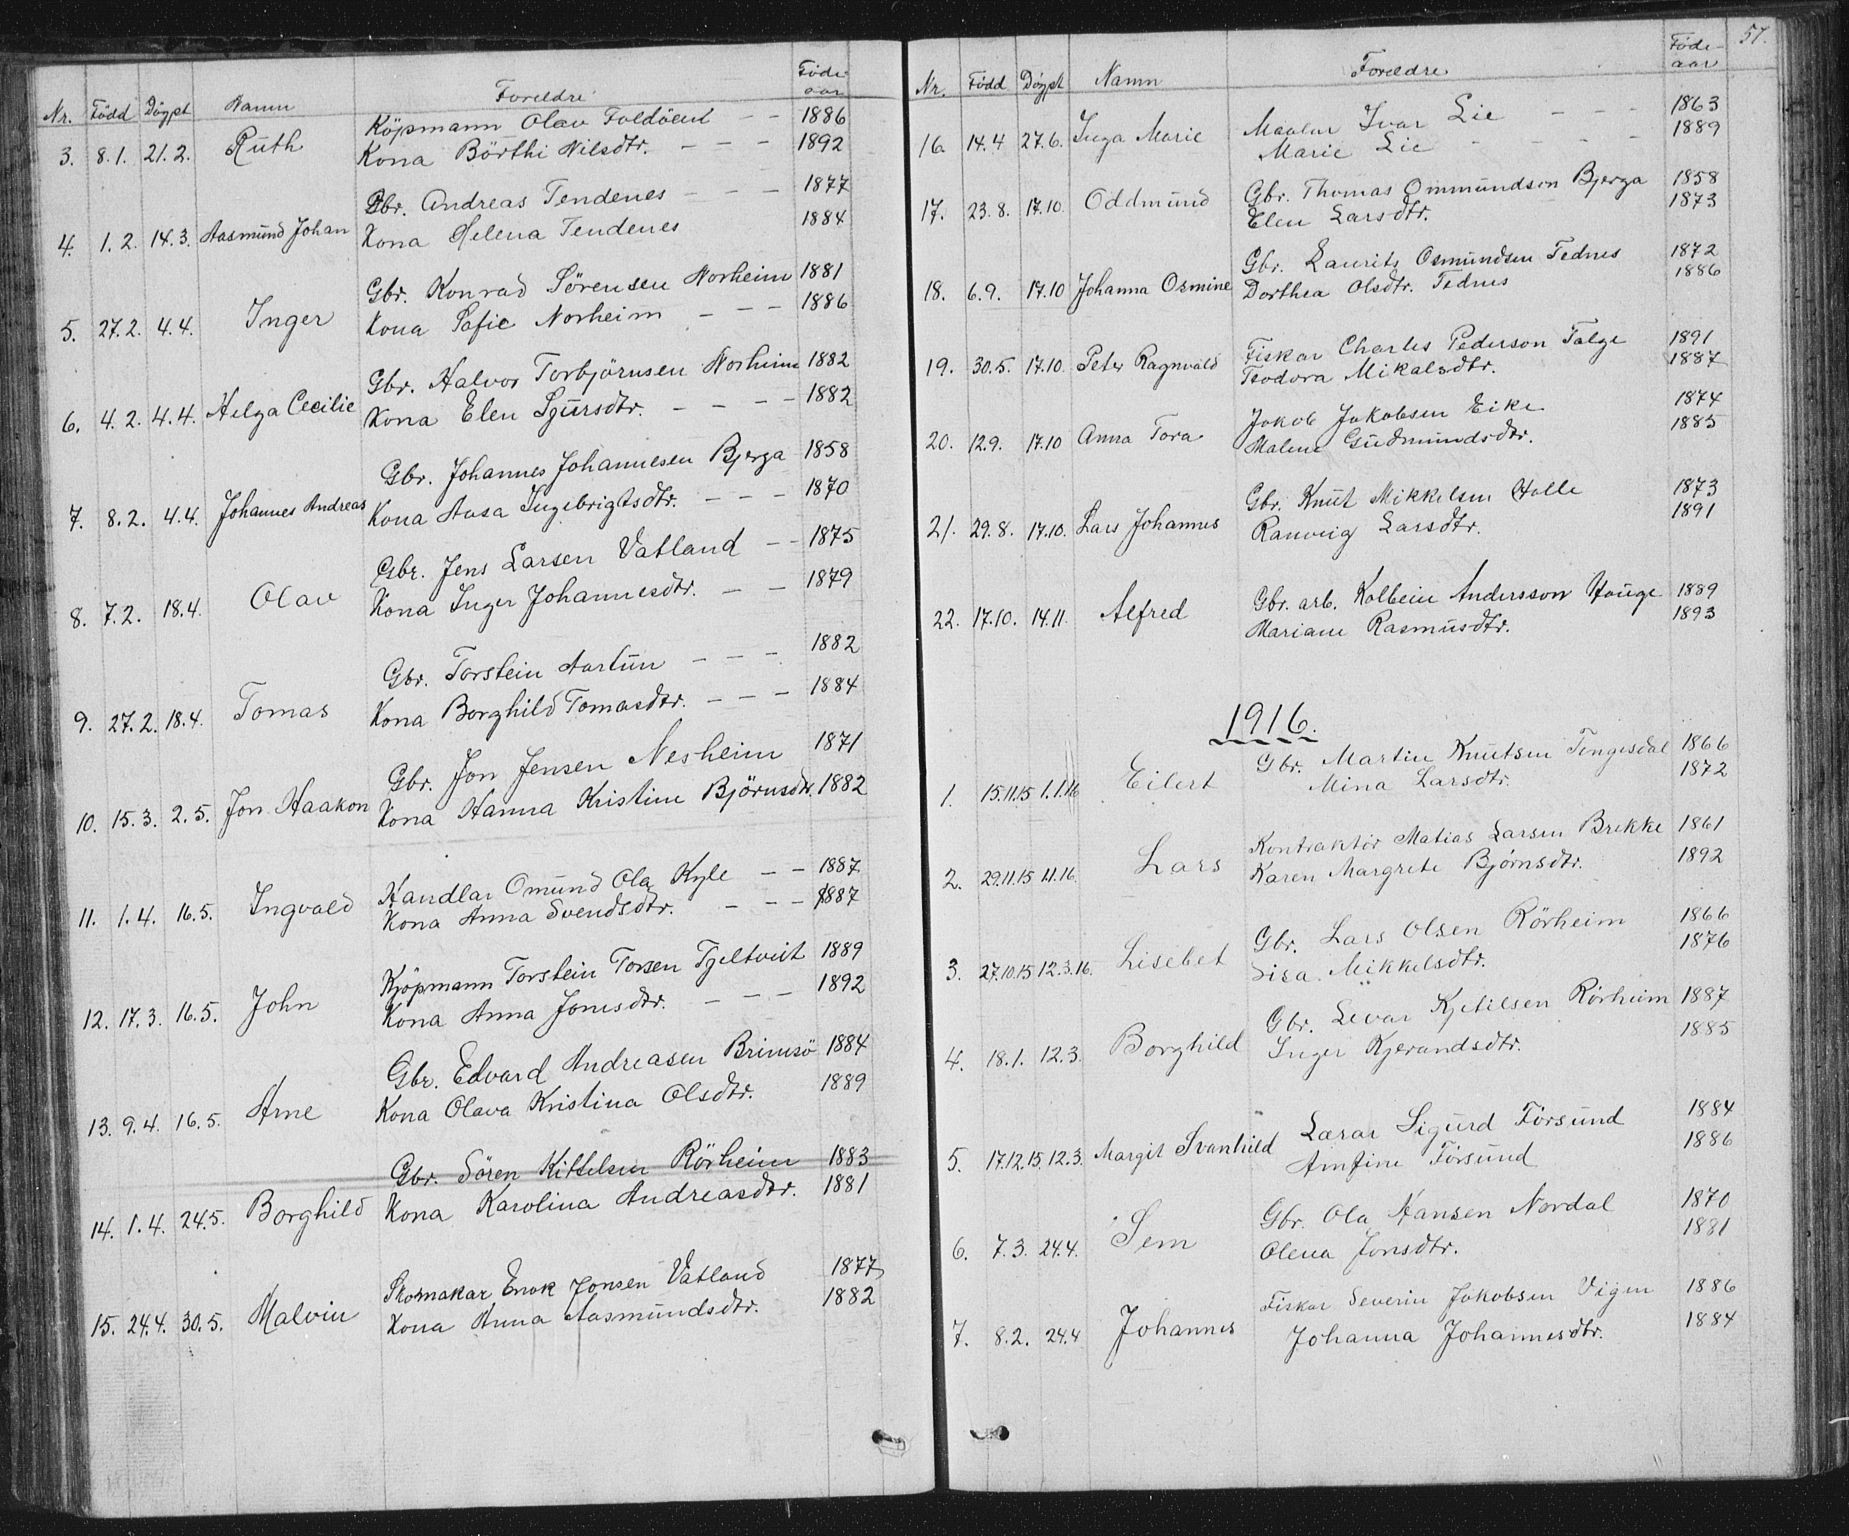 Nr. Född Döypt Namn Foreldre Föde-
aar
3. 8.1. 21.2. Ruth Köpmann Olav Foldöent - - 1886
Kona Börthi Nilsdtr. - - - 1892
4. 1.2. 14.3. Aasmund Johan Gbr. Andreas Tendenes - - - 1877
Kona Helena Tendenes 1884
5. 27.2. 4.4. Inger Gbr. Konrad Sörensen Norheim 1881
Kona Sofie Norheim - - - 1886
6. 4.2. 4.4. Helga Cecilie Gbr. Halvor Torbjörnsen Norheim 1882
Kona Elen Sjursdtr. - - - - 1882
7. 8.2. 4.4. Johannes Andreas Gbr. Johannes Johannesen Bjerga 1858
Kona Aasa Ingebrigtsdtr. - - - 1870
8. 7.2. 18.4. Olav Gbr. Jens Larsen Vatland - - 1875
Kona Inger Johannesdtr. - - 1879
9. 27.2. 18.4. Tomas Gbr. Torstein Aartun - - - 1882
Kona Borghild Tomasdtr. - - - 1884
10. 15.3. 2.5. Jon Haakon Gbr. Jon Jensen Nesheim 1871
Kona Hanna Kristine Björnsdtr. 1882
11. 1.4. 16.5. Ingvald Handlar Omund Ola Kyle - - 1887
Kona Anna Svendsdtr. - - - 1887
12. 17.3. 16.5. John Kjöpmann Torstein Torsen Tjeltveit 1889
Kona Anna Jonesdtr. - - - 1892
13. 9.4. 16.5. Arne Gbr. Edvard Andreasen Brimsö 1884
Kona Olava Kristina Olsdtr. 1889
14. 1.4. 24.5. Borghild Gbr. Sören Kittelsen Rörheim 1883
Kona Karolina Andreasdtr. 1881
15. 24.4. 30.5. Malvin Skomakar Enok Jonsen Vatland 1877
Kona Anna Aasmundsdtr. 1882
57.
Nr. Född Döypt Namn Foreldre Föde-
aar
16 14.4 27.6. Inga Marie Maalar Ivar Lie - - - 1863
Marie Lie - - - 1889
17. 23.8. 17.10. Oddmund Gbr. Thomas Ommundson Bjerga 1858
Elen Larsdtr. 1873
18. 6.9. 17.10 Johanna Osmine Gbr. Laurits Osmundsen Tednes 1872
Dorthea Olsdtr. Tednes 1886
19. 30.5. 17.10. Peter Ragnvald Fiskar Charles Pederson Talge 1891
Teodora Mikalsdtr. 1887
20. 12.9. 17.10 Anna Tora Jakob Jakobsen Eike 1874
Malene Gudmundsdtr. 1885
21. 29.8. 17.10. Lars Johannes Gbr. Knut Mikkelsen Halle 1873
Ranveig Larsdtr. 1891
22. 17.10. 14.11. Alfred Gbr. arb. Kolbein Andersson Hauge 1889
Mariane Rasmusdtr. 1893
1916.
1. 15.11.15 1.1.16 Eilert Gbr. Martin Knutsen Tengesdal 1866
Mina Larsdtr. 1872
2. 29.11.15 1.1.16. Lars Kontraktör Matias Larsen Brekke 1861
Karen Margrete Bjørnsdtr. 1892
3. 27.10.15 12.3.16. Lisebet Gbr. Lars Olsen Rörheim 1866
Sisa Mikkelsdtr. 1876
4. 18.1. 12.3. Borghild Gbr. Sevar Kjetilsen Rörheim 1887
Inger Kjerandsdtr. 1885
5. 17.12.15. 12.3. Margit Svanhild Lærar Sigurd Försund 1884
Arnfine Försund 1886
6. 7.3. 24.4. Sem Gbr. Ola Hansen Nordal 1870
Olena Jonsdtr. 1881
7. 8.2. 24.4 Johannes Fiskar Severin Jakobsen Vigen 1886
Johanna Johannesdtr. 1884